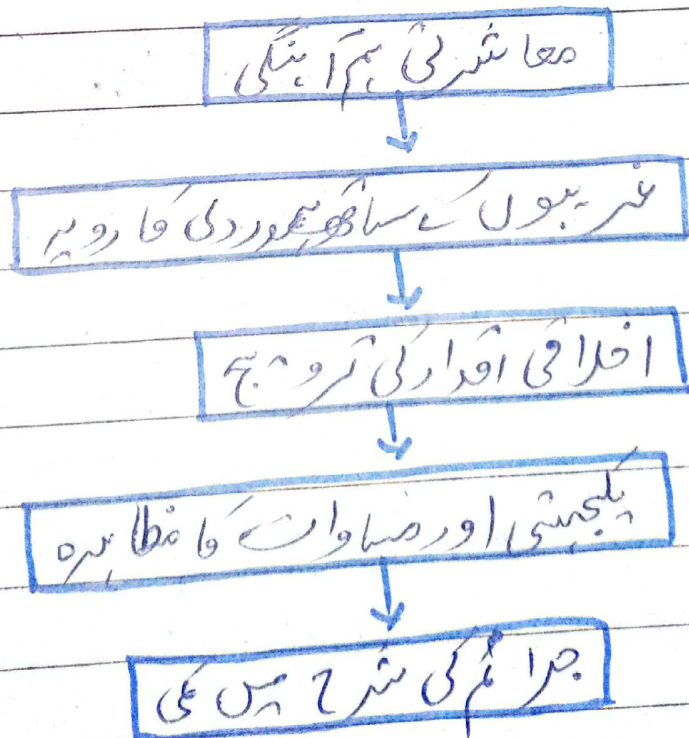 معاشرتی ہم آہنگی
غریبوں کے ساتھ ہمدردی کا رویہ
اخلاقی اقدار کی ترویج
یکجہتی اور مساوات کا مظاہرہ
جرائم کی شرح میں کمی